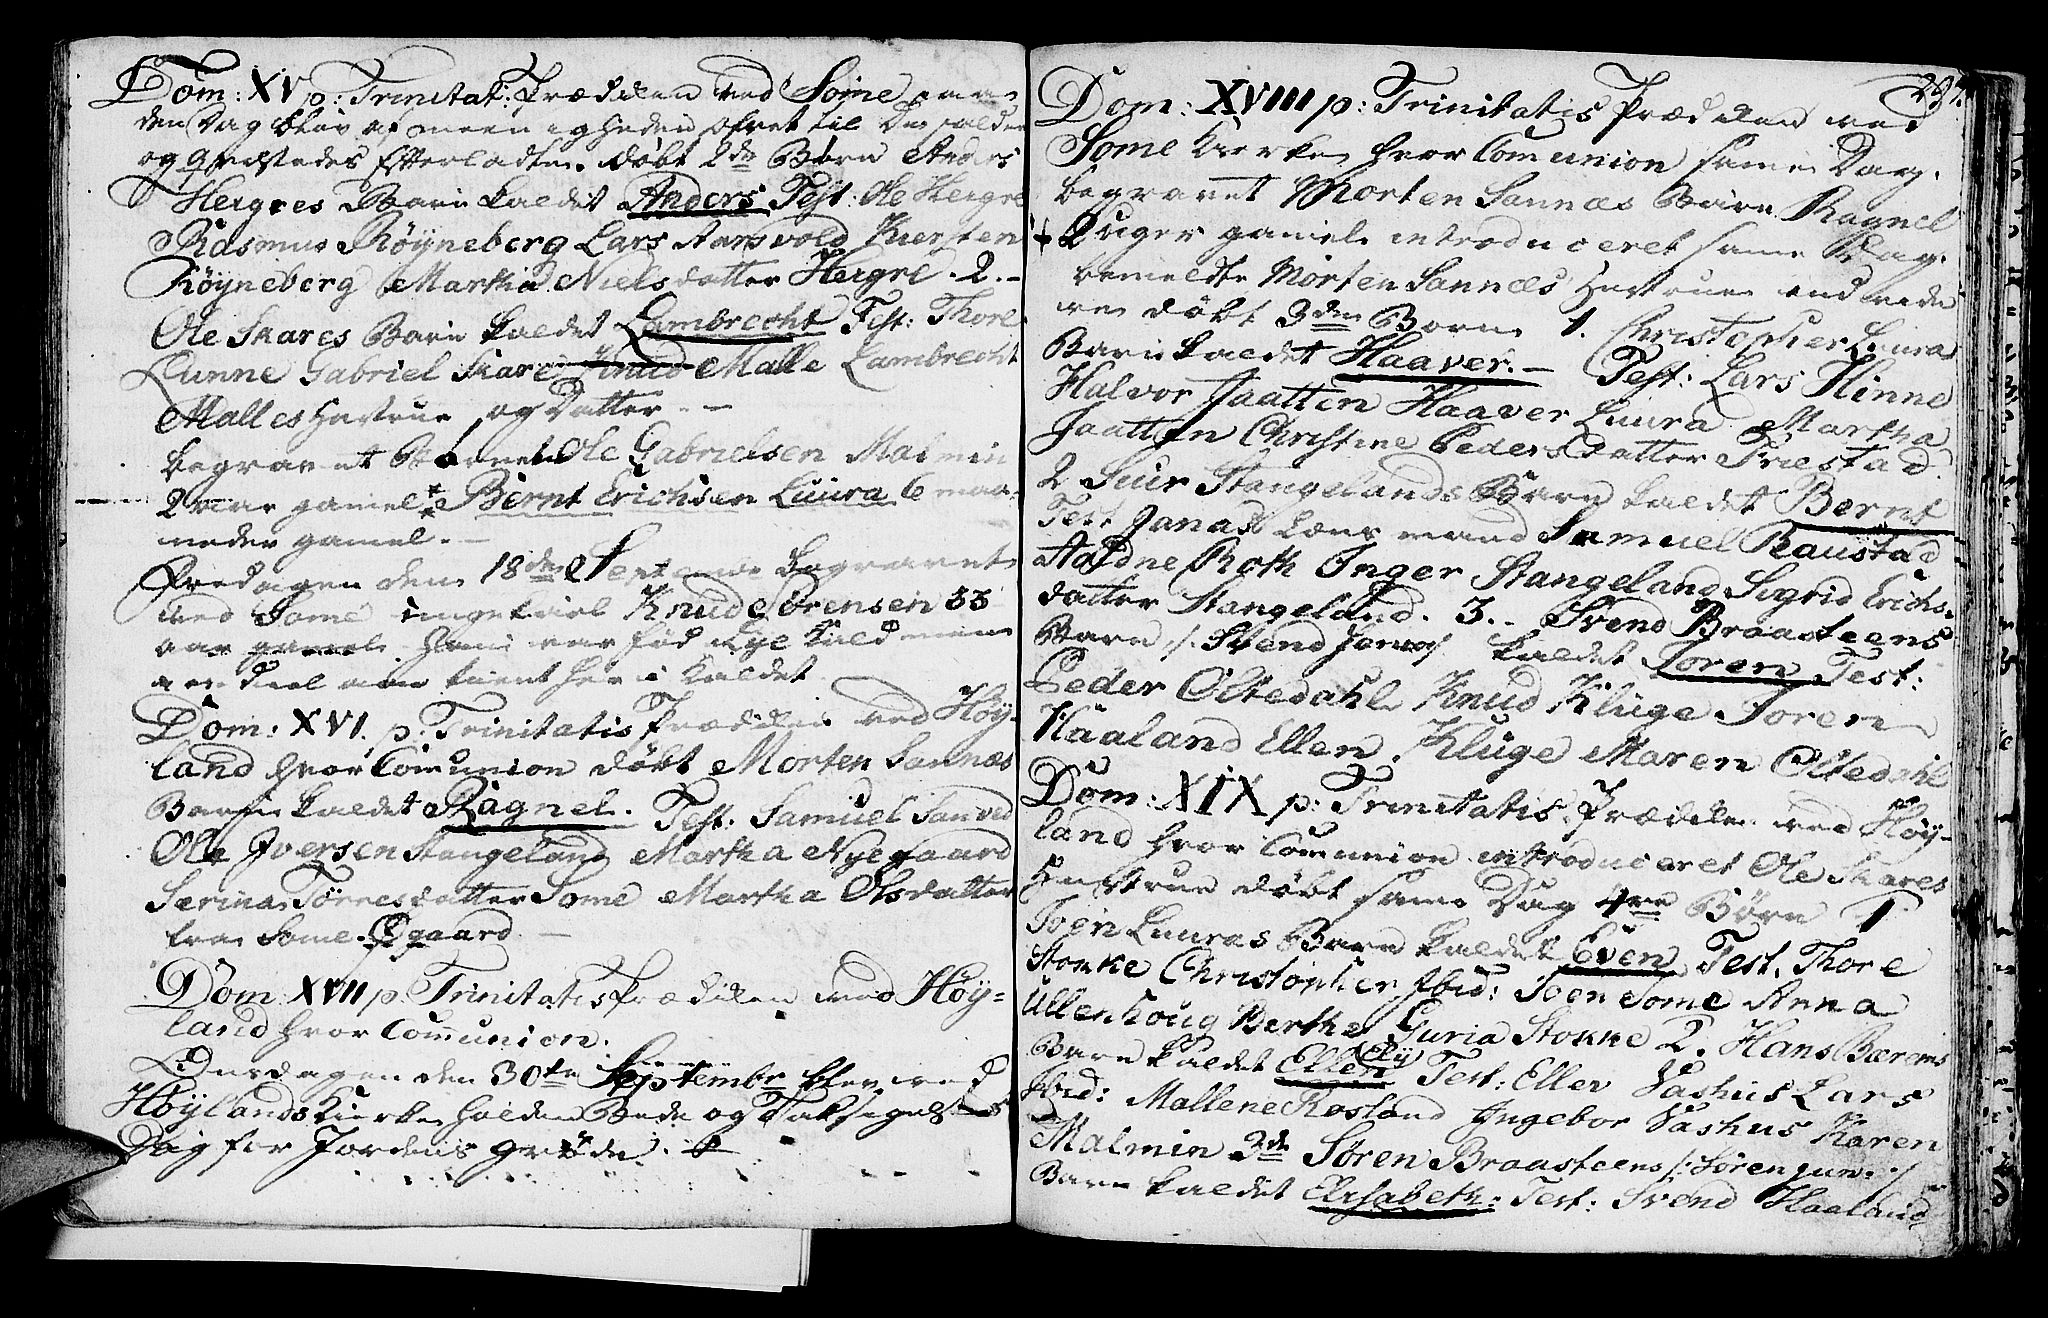 Dom: XV p: Trinitat: Prædiken ved Some samme
den Dag blev af meenigheden ofret til De faldne
og qvæstedes Efterladte. døbt 2de Børn Anders
Heigres Barn kaldet Anders Test: Ole Heigre
Rasmus Røÿneberg Lars Aarsvold Kiersten
Røÿneberg Martha Nielsdatter Heigre. 2.-
Ole Skares Barn kaldet Lambrecht Test: Thore
Lunne Gabriel Skare Knud Malle Lambrecht
Malles Hustrue og Datter. -
begravet Barnet Ole Gabrielsen Malmin
2 aar gamel Bernt Erichsen Luura 6 maa-
neder gamel. -
Fredagen den 18de Septemb. begravet
ved Some ungekarl Knud Sørensen 33
aar gamel Han var fød
tient her i Kaldet
Dom: XVI. p: Trinitatis Prædiken ved Høÿ-
land hvor Comunion døbt Morten Sannæs
Barn kaldet Ragnel. Test: Samuel Sanved
Ole Iversen Stangeland Martha Nÿegaard
Serina Tørresdatter Some Martha Olsdatter
fra Some. Øgaard. -
Dom: XVII p: Trinitatis Prædiken ved Høÿ=
land hvor Communion.
Onsdagen den 30te Septembr blev ved
Høÿlands Kierke holden Bede og Taksigelses
Dag for Jordens grøde.
297.
Dom: XVIII p: Trinitatis Prædiken ved
Some Kierke hvor Comunion samme Dag.
begravet Morten Sannæs Barn Ragnel
2 Uger gamel introduceret samme Dag.
bemeldte Morten Sannæs Hustrue end vide
re døbt 3de Børn 1. Christopher Luuras
Barn kaldet Haaver. - Test: Lars Hinne
Halvor Jaatten Haaver Luura Martha
Jaatten Christine Pedersdatter Friestad
2 Siur Stangelands Barn kaldet Bernt
Test Janas Lænsmand Samuel Raustad
Aadne Roth Inger Stangeland Sigrid Erichs-
datter Stangeland. 3.. Svend Braasteens
Barn /: Svend Jonsø/ kaldet Joren Test:
Peder Oltedahl Knud Kluge Joren
Haaland Ellen Kluge Maren Oltedahl
Dom: XIX p: Trinitatis. Prædiken ved Høÿ-
land hvor Comunion introduceret Ole Skares
Hustrue døbt samme Dag 4re Børn 1
Joen Luuras Barn kaldet Even Test. Thore
Stokke Christopher Ibid: Joen Some Anna
Ullenhoug Berthe Guria Stokke 2. Hans Bærems
Barn kaldet Ellen Test: Eller Vashus Lars
Ibid: Mallene Rosland Ingebor Vashus Karen
Malmin 3de Søren Braasteens /: Søren jun: :/
Barn kaldet Elisabeth: Test: Svend Haaland